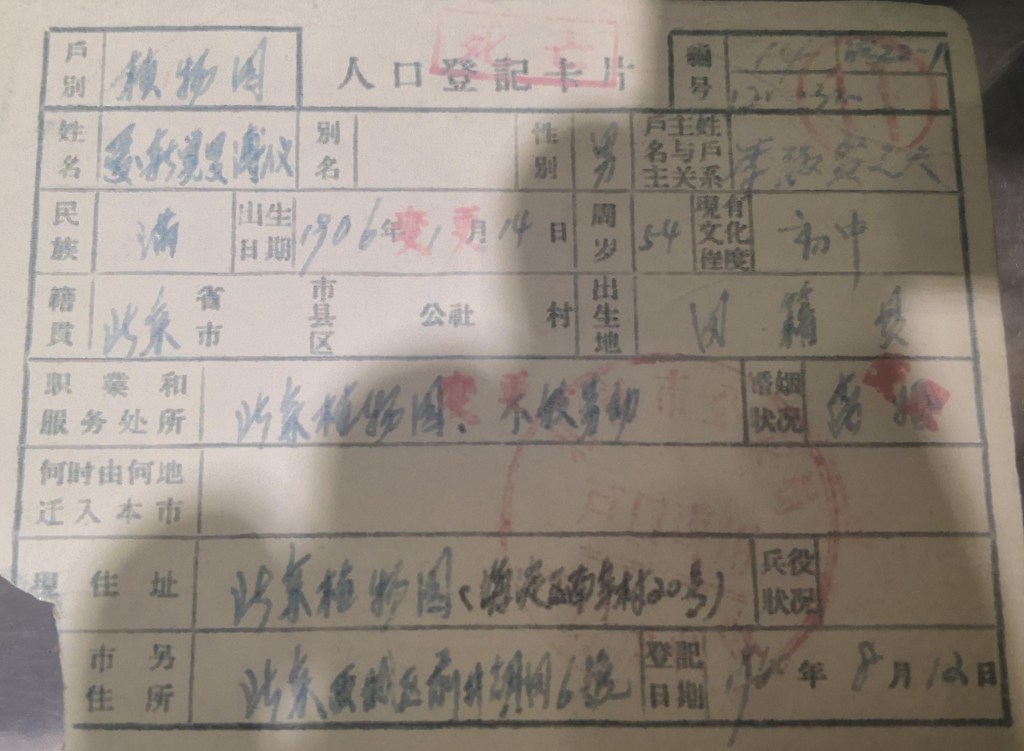 死亡
户别 植物园 人口登記卡片 編号
姓名 爱新觉罗溥仪 別名 性別 男 户主姓名与户主关系
民族 满 出生日期 1906年1月14日 变更 周岁 54 現有文化程度 初中
籍貫 北京 省市 市县区 公社 村 出生地 同籍贯
职業和服务处所 北京植物园、不伙劳动 变更 婚姻状况 离婚
何时由何地迁入本市
現住址 北京植物园(海淀区南辛村20号) 兵役狀况
市另住所 北京西城区前井胡同6号 登記日期 1960年8月12日